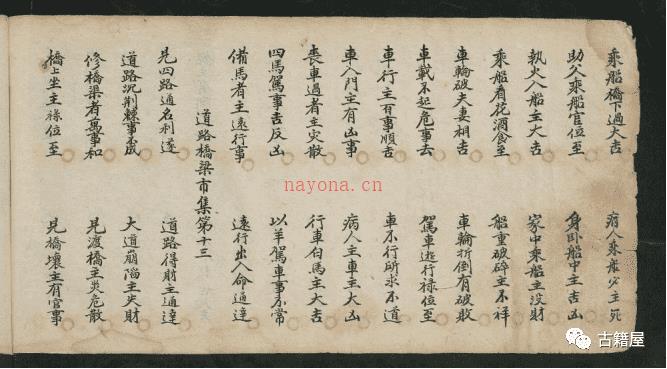 乘船橋下過大吉　病人乘船必主死
助父乘船官位至　身卧船中主吉凶
執火入船主大吉　家中乘船主没財
乘船看花酒食至　船重破碎主不祥
車輪破夫妻相吉　車輪折倒有破敗
車載不起危事去　駕車逰行禄位至
車行主百事順吉　車不行所求不道
車入門主有凶事　病人主車主大凶
喪車過者主灾散　行車白馬主大吉
四馬駕事吉反凶　以羊駕車事不常
備馬者主遠行事　遠行出入命通達
道路橋梁市集第十三
見四路通名利遂　道路得財主通達
道路沉荆棘事不成　大道崩陷主失財
修橋梁者萬事和　見渡橋主災危散
橋上坐主祿位至　見橋壞主有官事
nayona.cn
古籍屋